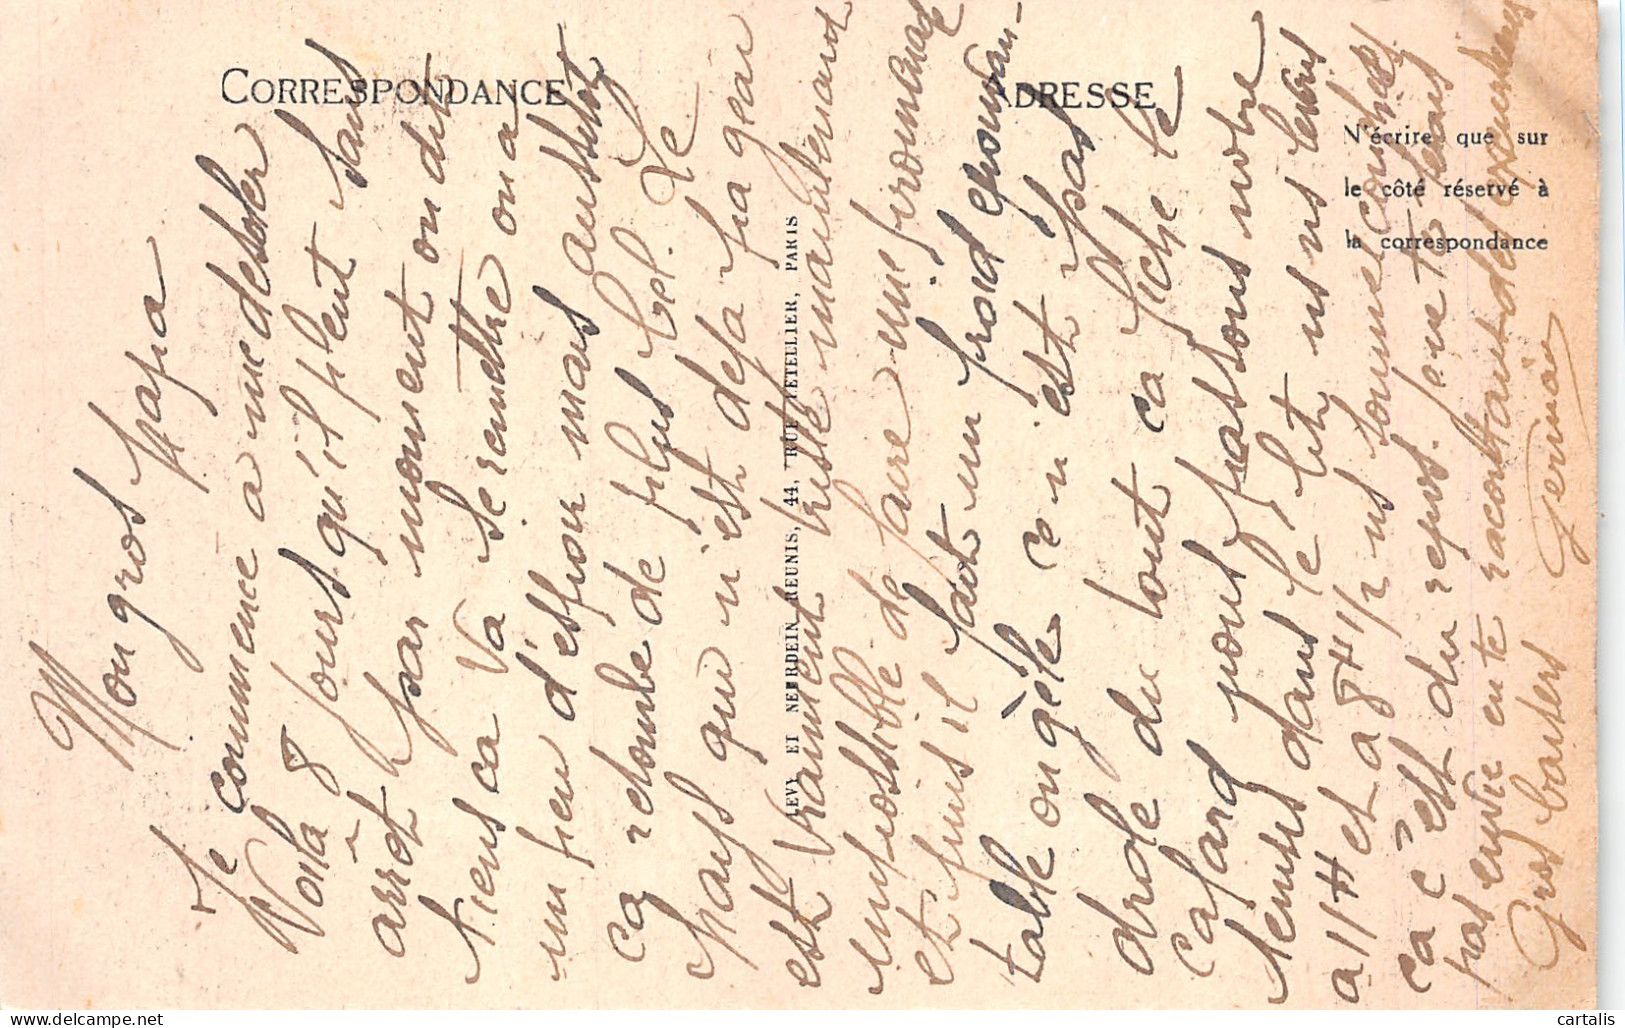 CORRESPONDANCE
ADRESSE
N'écrire que sur
le côté réservé à
la correspondance
LEVY ET NEURDEIN REUNIS, 44, RUE LETELLIER, PARIS
Mon gros papa
Je commence à me desoler
Voilà 8 jours qu'il pleut sans
arrêt par moment on dit
tiens ca va se remettre on a
un peu d'espoir mais aussitot
ça retombe de plus bel. Le
pays qui n'est deja pa geai
est vraiment triste maintenant
impossible de faire une promenade
et puis il fait un froid epouvan-
table on gèle ce n'est pas
drole du tout ca fiche le
cafard nous passons notre
temps dans le lit ns ns levons
a 11H et a 8H1/2 ns sommes couchés
ca c'est du repos.
pas envie en te racontant des
Gros baisers Germain
cartalis